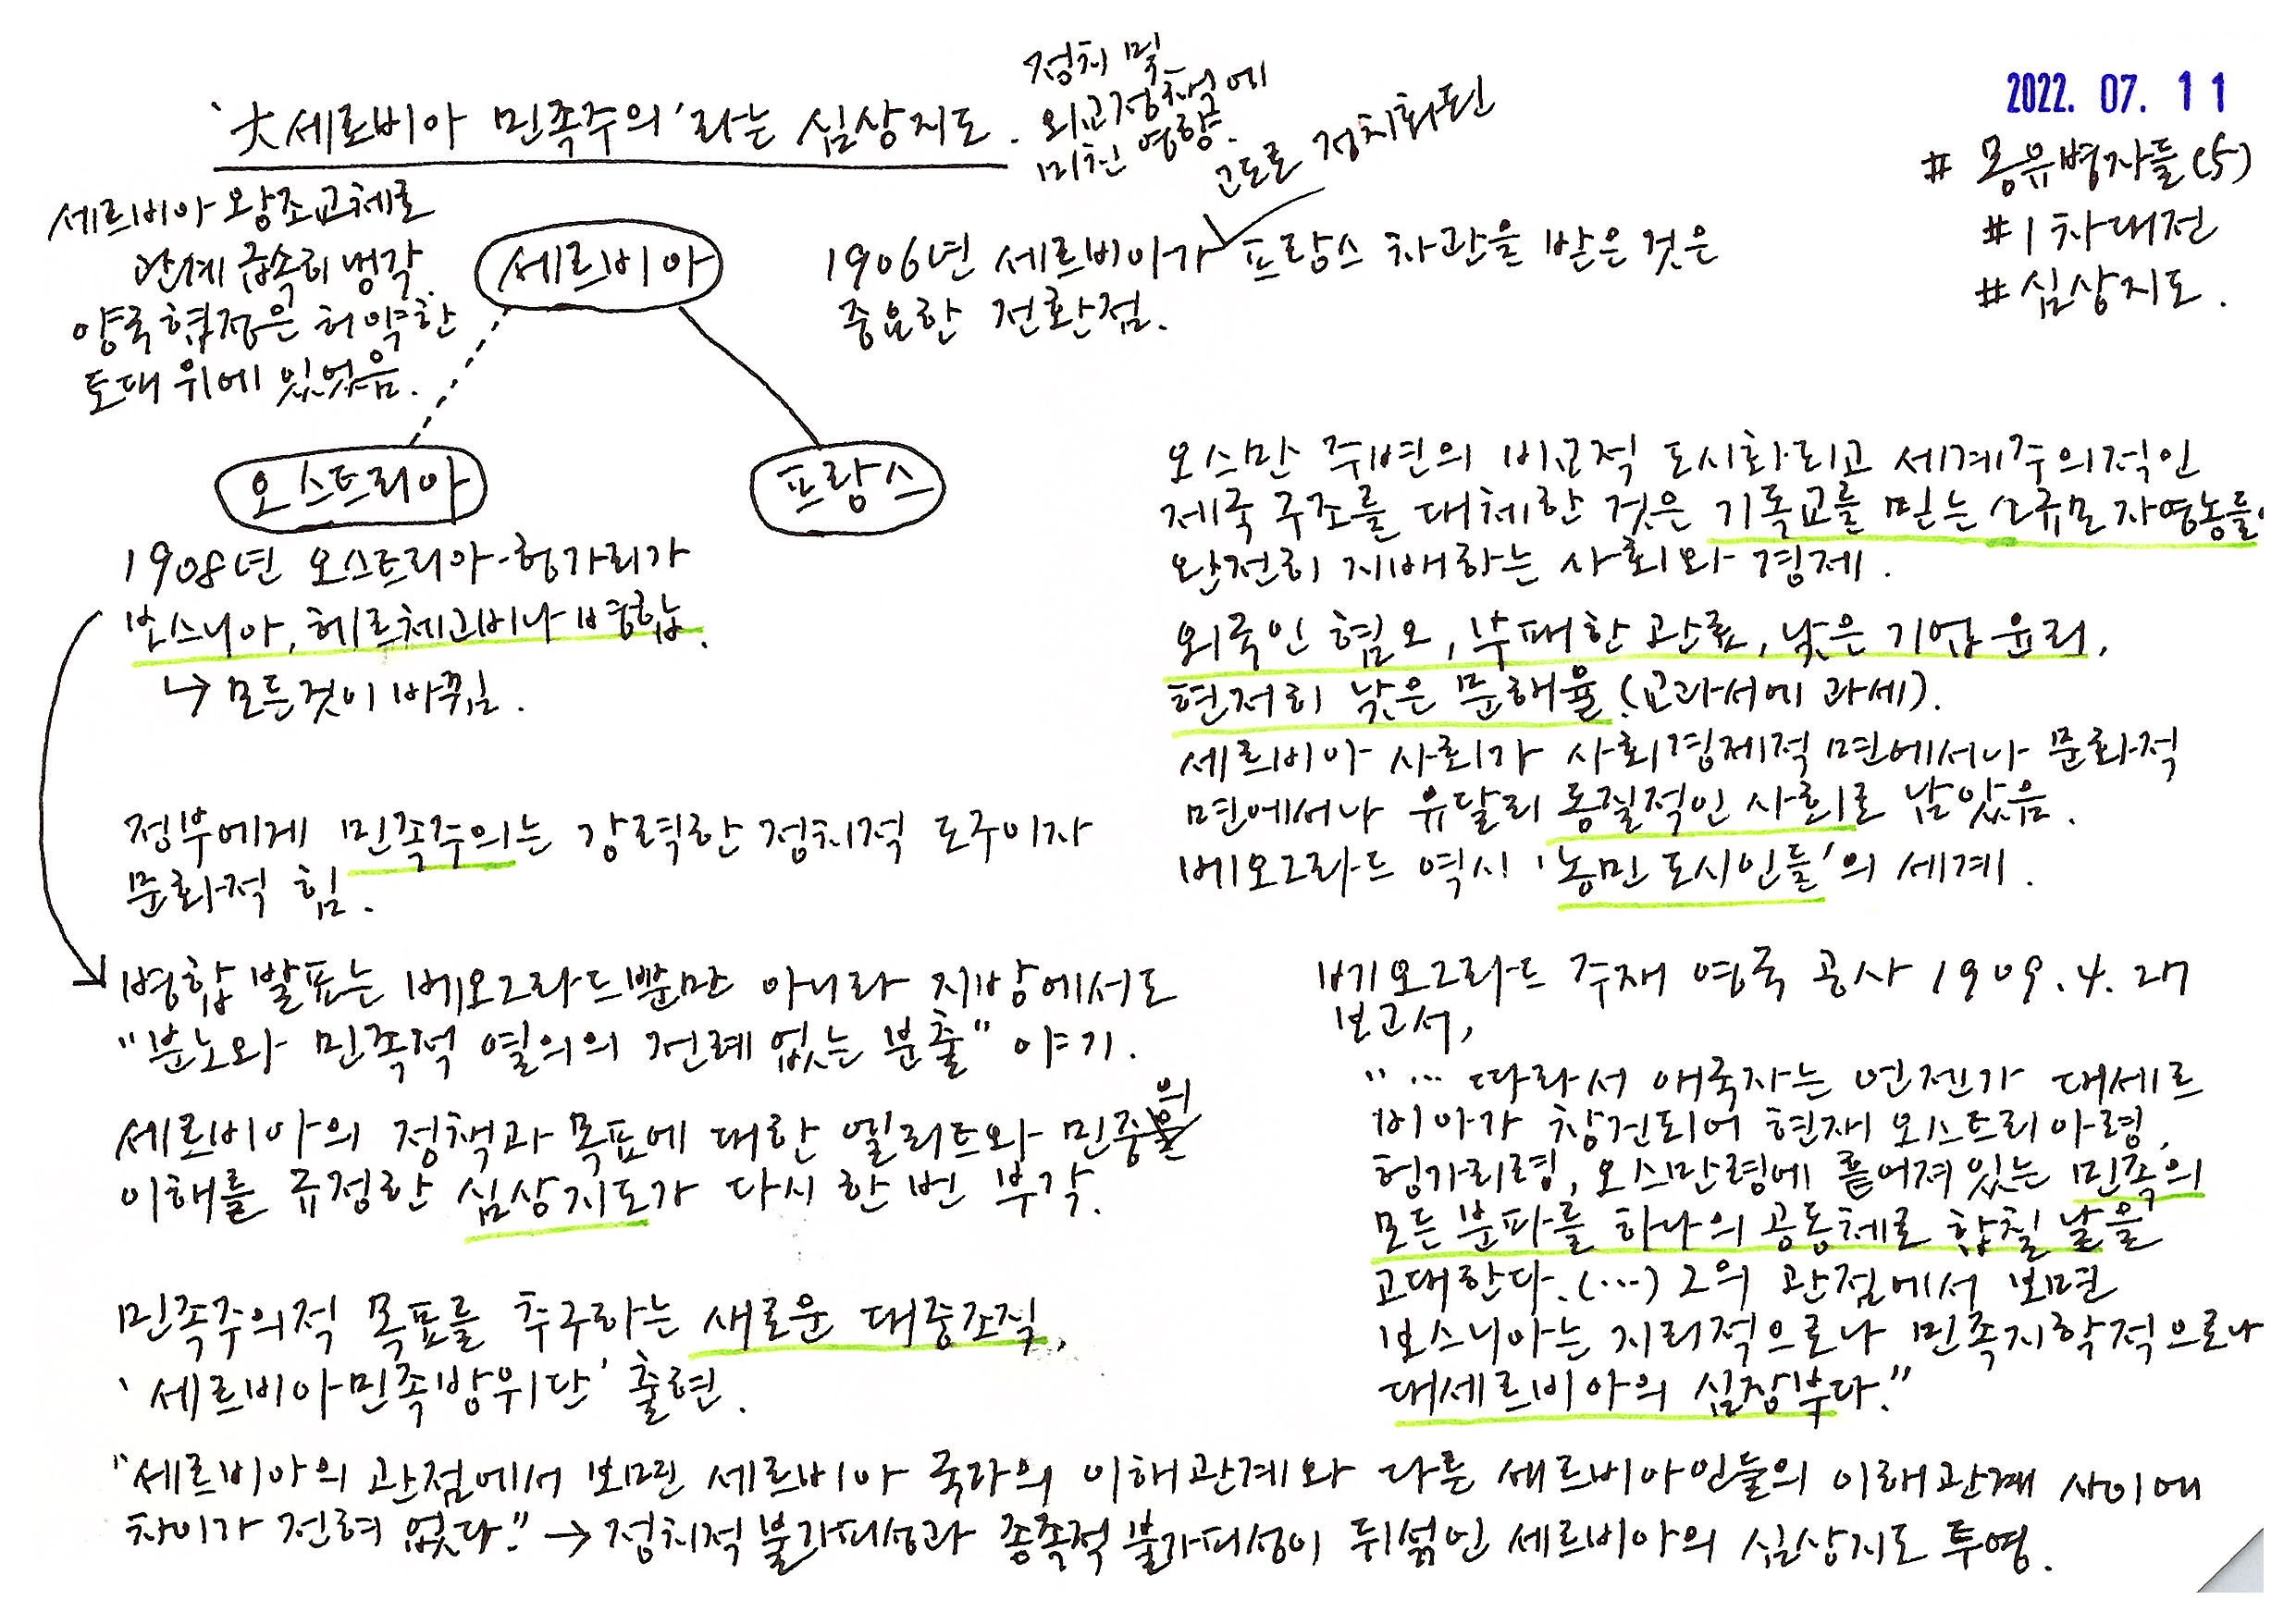 2022. 07. 11
# 몽유병자들(5)
# 1차대전
# 심상지도.
'大세르비아 민족주의'라는 심상지도.
정치 및
외교정책에
미친 영향.
세르비아 왕조교체로
관계 급속히 냉각.
양국 협정은 허약한
토대 위에 있었음.
세르비아
오스트리아
프랑스
고도로 정치화된
1906년 세르비아가 프랑스 차관을 받은 것은
중요한 전환점.
1908년 오스트리아-헝가리가
보스니아, 헤르체고비나 병합.
↳ 모든것이 바뀜.
정부에게 민족주의는 강력한 정치적 도구이자
문화적 힘.
병합 발표는 베오그라드뿐만 아니라 지방에서도
"분노와 민족적 열의의 전례 없는 분출" 야기.
세르비아의 정책과 목표에 대한 엘리트와 민중의
이해를 규정한 심상지도가 다시 한 번 부각.
민족주의적 목표를 추구하는 새로운 대중조직,
'세르비아민족방위단' 출현.
오스만 주변의 비교적 도시화되고 세계주의적인
제국 구조를 대체한 것은 기독교를 믿는 소규모 자영농들이
완전히 지배하는 사회와 경제.
외국인 혐오, 부패한 관료, 낮은 기업 윤리,
현저히 낮은 문해율 (교과서에 과세).
세르비아 사회가 사회경제적 면에서나 문화적
면에서나 유달리 동질적인 사회로 남았음.
베오그라드 역시 '농민 도시인들'의 세계.
베오그라드 주재 영국 공사 1909.4.27
보고서,
"… 따라서 애국자는 언젠가 대세르
비아가 창건되어 현재 오스트리아령,
헝가리령, 오스만령에 흩어져 있는 민족의
모든 분파를 하나의 공동체로 합칠 날을
고대한다. (…) 그의 관점에서 보면
보스니아는 지리적으로나 민족지학적으로나
대세르비아의 심장부다."
"세르비아의 관점에서 보면 세르비아 국가의 이해관계와 다른 세르비아인들의 이해관계 사이에
차이가 전혀 없다." → 정치적 불가피성과 종족적 불가피성이 뒤섞인 세르비아의 심상지도 투영.